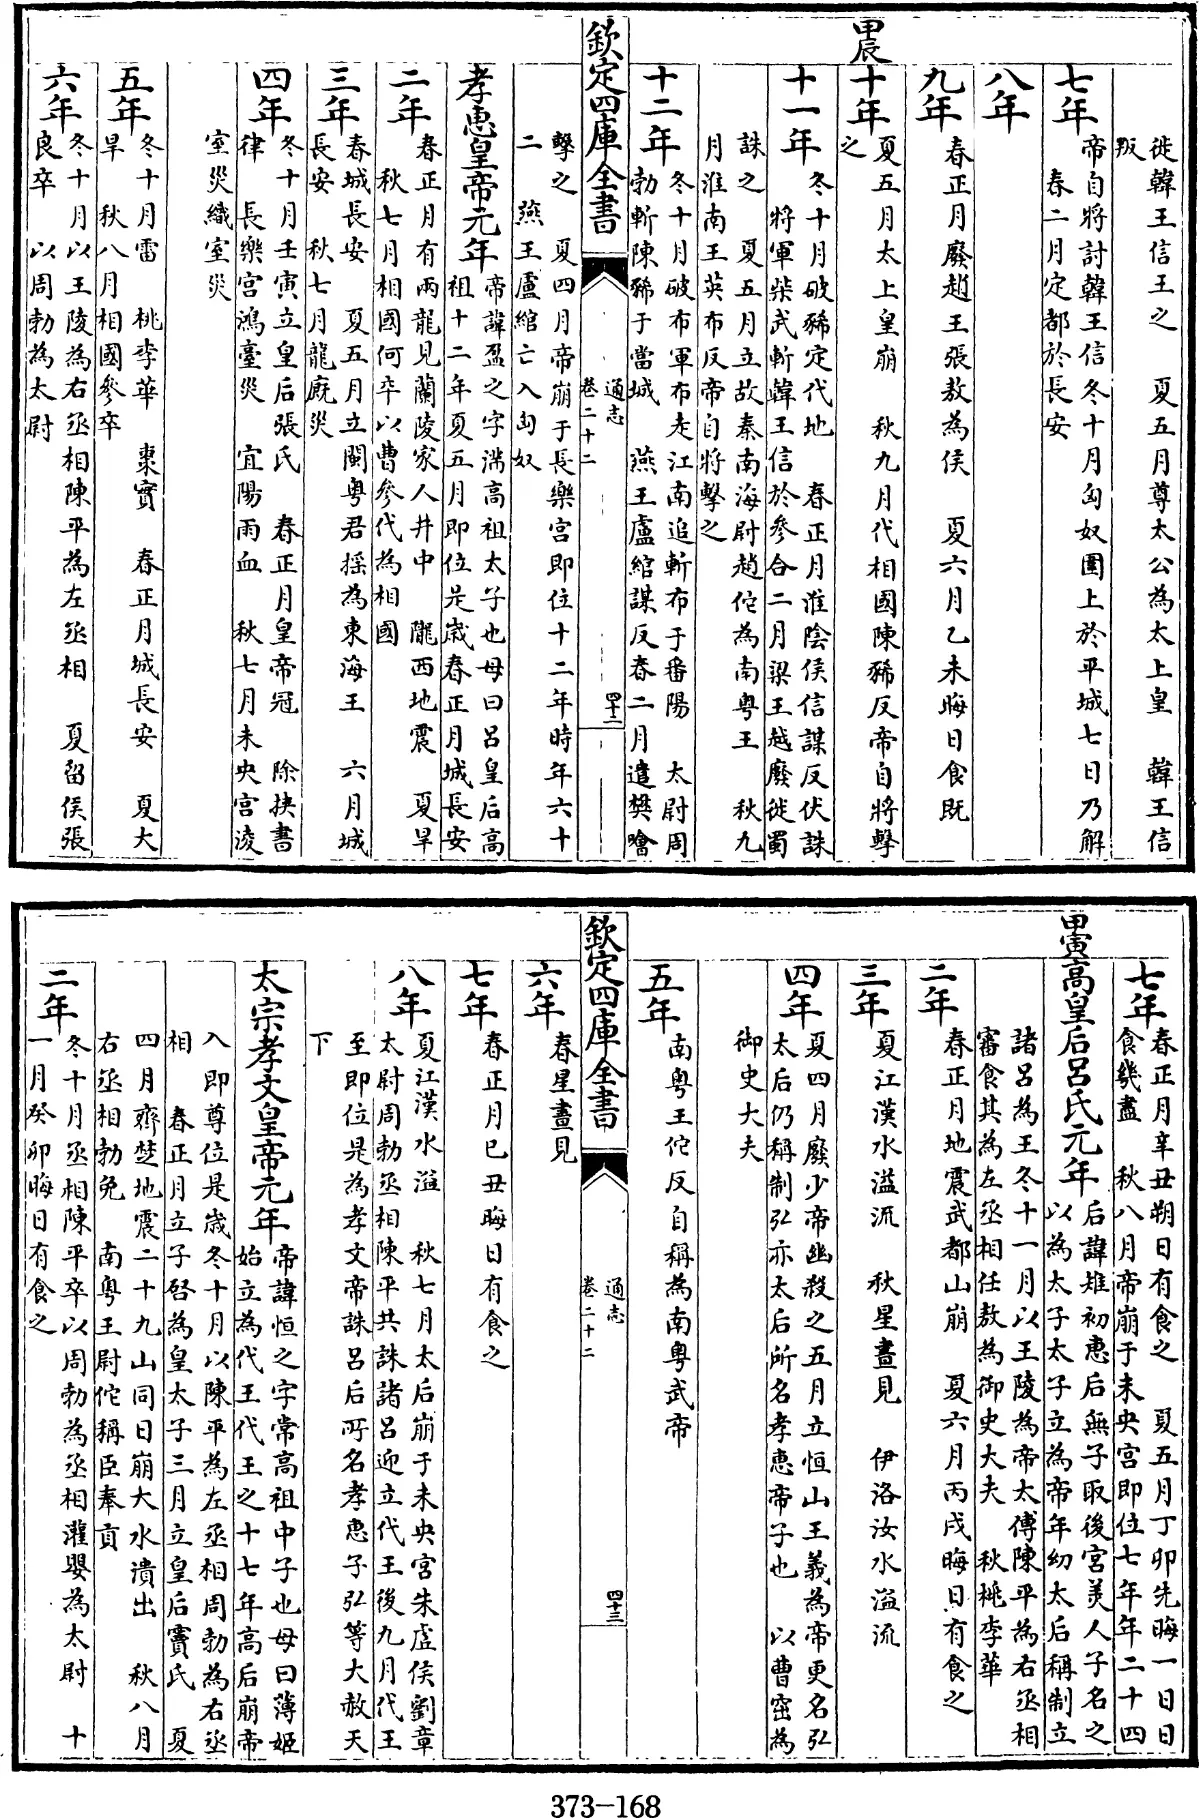 徙韓王信王之　夏五月尊太公為太上皇　韓王信
叛
七年
帝自將討韓王信冬十月匈奴圍上於平城七日乃解
春二月定都於長安
八年
九年
春正月廢趙王張敖為侯　夏六月乙未晦日食既
甲辰
十年
夏五月太上皇崩　秋九月代相國陳豨反帝自將擊
之
十一年
冬十月破豨定代地　春正月淮陰侯信謀反伏誅
將軍柴武斬韓王信於參合二月梁王越廢徙蜀
誅之　夏五月立故秦南海尉趙佗為南粤王　秋九
月淮南王英布反帝自將擊之
十二年
冬十月破布軍布走江南追斬布于番陽　太尉周
勃斬陳豨于當城　燕王盧綰謀反春二月遣樊噲
欽定四庫全書
通志
卷二十二
四十二
擊之　夏四月帝崩于長樂宮即位十二年時年六十
二　燕王盧綰亡入匈奴
孝惠皇帝元年
帝諱盈之字滿高祖太子也母曰呂皇后高
祖十二年夏五月即位是歲春正月城長安
二年
春正月有兩龍見蘭陵家人井中　隴西地震　夏旱
秋七月相國何卒以曹參代為相國
三年
春城長安　夏五月立閩粤君揺為東海王　六月城
長安　秋七月龍廐災
四年
冬十月壬寅立皇后張氏　春正月皇帝冠　除挾書
律　長樂宮鴻臺災　宜陽雨血　秋七月未央宮凌
室災織室災
五年
冬十月雷　桃李華　棗實　春正月城長安　夏大
旱　秋八月相國參卒
六年
冬十月以王陵為右丞相陳平為左丞相　夏留侯張
良卒　以周勃為太尉
七年
春正月辛丑朔日有食之　夏五月丁卯先晦一日日
食幾盡　秋八月帝崩于未央宮即位七年年二十四
甲寅
高皇后呂氏元年
后諱雉初惠后無子取後宮美人子名之
以為太子太子立為帝年幼太后稱制立
諸呂為王冬十一月以王陵為帝太傅陳平為右丞相
審食其為左丞相任敖為御史大夫　秋桃李華
二年
春正月地震武都山崩　夏六月丙戌晦日有食之
三年
夏江漢水溢流　秋星晝見　伊洛汝水溢流
四年
夏四月廢少帝幽殺之五月立恒山王義為帝更名弘
太后仍稱制弘亦太后所名孝惠帝子也　以曹窋為
御史大夫
五年
南粤王佗反自稱為南粤武帝
欽定四庫全書
通志
卷二十二
四十三
六年
春星晝見
七年
春正月己丑晦日有食之
八年
夏江漢水溢　秋七月太后崩于未央宮朱虛侯劉章
太尉周勃丞相陳平共誅諸呂迎立代王後九月代王
至即位是為孝文帝誅呂后所名孝惠子弘等大赦天
下
太宗孝文皇帝元年
帝諱恒之字常高祖中子也母曰薄姬
始立為代王代王之十七年高后崩帝
入即尊位是歲冬十月以陳平為左丞相周勃為右丞
相　春正月立子啓為皇太子三月立皇后竇氏　夏
四月齊楚地震二十九山同日崩大水潰出　秋八月
右丞相勃免　南粤王尉佗稱臣奉貢
二年
冬十月丞相陳平卒以周勃為丞相灌嬰為太尉　十
一月癸卯晦日有食之
373-168